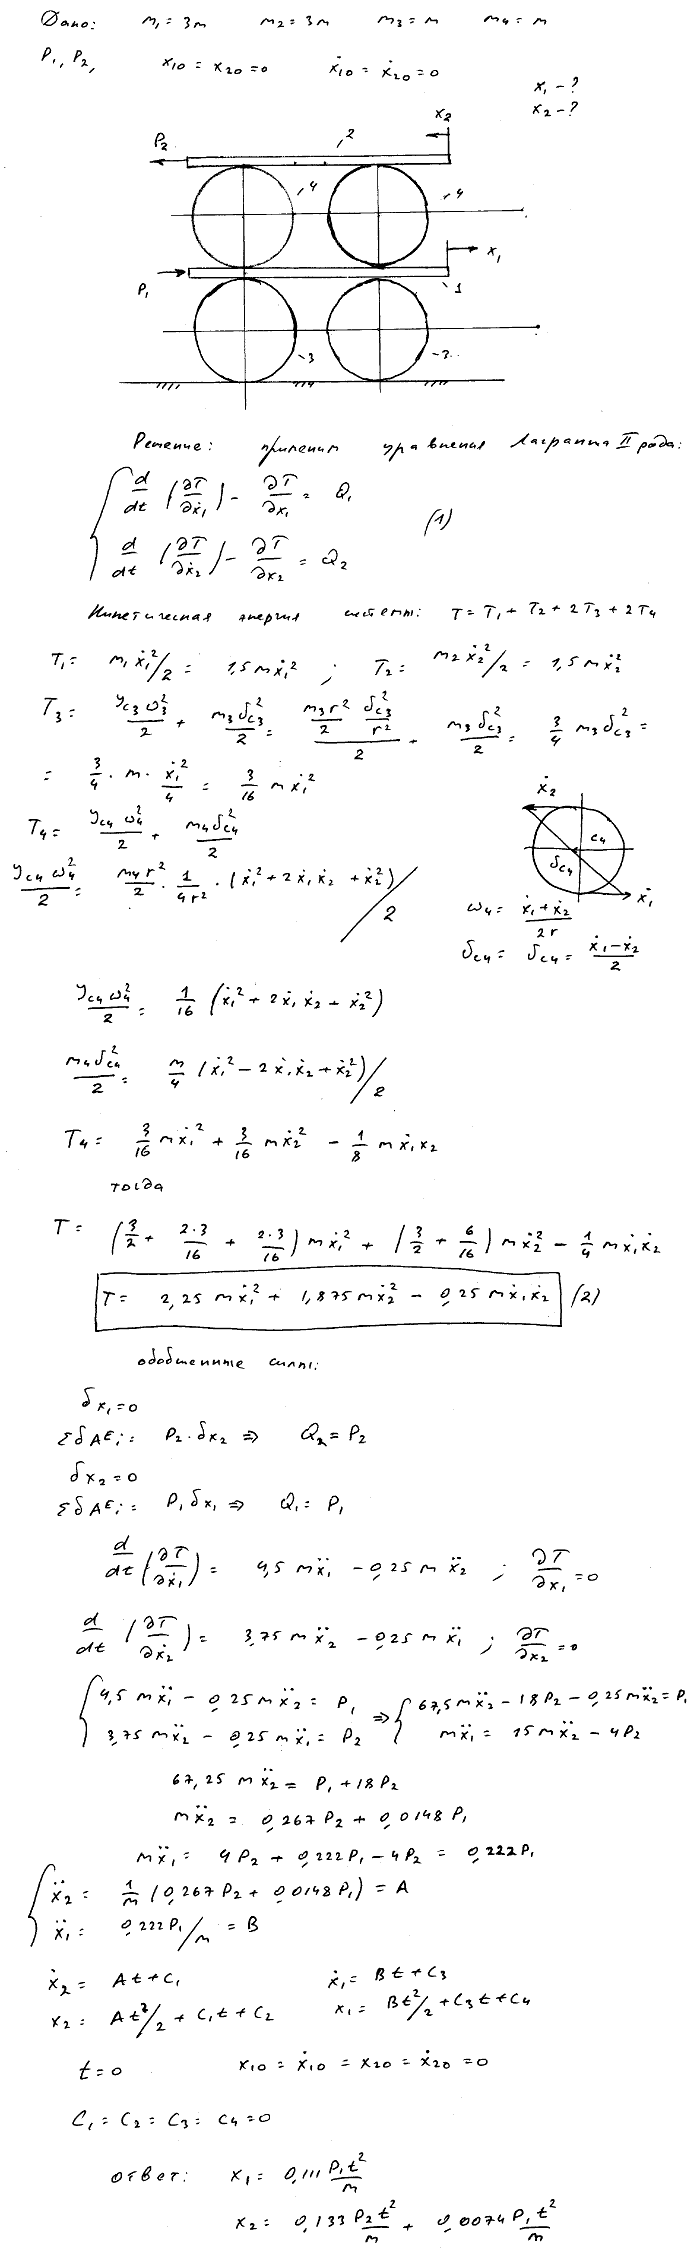 Дано: m₁ = 3m   m₂ = 3m   m₃ = m   m₄ = m
P₁, P₂,   x₁₀ = x₂₀ = 0   ẋ₁₀ = ẋ₂₀ = 0
x₁ - ?
x₂ - ?
x₂
P₂   2
4   4
x₁
P₁   1
3   3
Решение: применим уравнения Лагранжа II рода:
d/dt (∂T/∂ẋ₁) - ∂T/∂x₁ = Q₁
(1)
d/dt (∂T/∂ẋ₂) - ∂T/∂x₂ = Q₂
Кинетическая энергия системы: T = T₁ + T₂ + 2T₃ + 2T₄
T₁ = m₁ẋ₁²/2 = 1,5mẋ₁² ; T₂ = m₂ẋ₂²/2 = 1,5mẋ₂²
T₃ = Jc₃ω₃²/2 + m₃υc₃²/2 = (m₃r²/2 · υc₃²/r²)/2 + m₃υc₃²/2 = 3/4 m₃υc₃² =
= 3/4 · m · ẋ₁²/4 = 3/16 mẋ₁²
T₄ = Jc₄ω₄²/2 + m₄υc₄²/2
ẋ₂
c₄
υc₄
ẋ₁
Jc₄ω₄²/2 = m₄r²/2 · 1/4r² · (ẋ₁² + 2ẋ₁ẋ₂ + ẋ₂²)/2
ω₄ = (ẋ₁ + ẋ₂)/2r
υc₄ = υc₄ = (ẋ₁ - ẋ₂)/2
Jc₄ω₄²/2 = 1/16 (ẋ₁² + 2ẋ₁ẋ₂ + ẋ₂²)
m₄υc₄²/2 = m/4 (ẋ₁² - 2ẋ₁ẋ₂ + ẋ₂²)/2
T₄ = 3/16 mẋ₁² + 3/16 mẋ₂² - 1/8 mẋ₁x₂
тогда
T = (3/2 + 2·3/16 + 2·3/16) mẋ₁² + (3/2 + 6/16) mẋ₂² - 1/4 mẋ₁ẋ₂
T = 2,25 mẋ₁² + 1,875 mẋ₂² - 0,25 mẋ₁ẋ₂ (2)
обобщенные силы:
δx₁ = 0
ΣδAᴱᵢ = P₂·δx₂ ⇒ Q₂ = P₂
δx₂ = 0
ΣδAᴱᵢ = P₁δx₁ ⇒ Q₁ = P₁
d/dt (∂T/∂ẋ₁) = 4,5mẍ₁ - 0,25mẍ₂ ; ∂T/∂x₁ = 0
d/dt (∂T/∂ẋ₂) = 3,75mẍ₂ - 0,25mẍ₁ ; ∂T/∂x₂ = 0
4,5mẍ₁ - 0,25mẍ₂ = P₁ ⇒ 67,5mẍ₂ - 18P₂ - 0,25mẍ₂ = P₁
3,75mẍ₂ - 0,25mẍ₁ = P₂   mẍ₁ = 15mẍ₂ - 4P₂
67,25mẍ₂ = P₁ + 18P₂
mẍ₂ = 0,267P₂ + 0,0148P₁
mẍ₁ = 4P₂ + 0,222P₁ - 4P₂ = 0,222P₁
ẍ₂ = 1/m (0,267P₂ + 0,0148P₁) = A
ẍ₁ = 0,222P₁/m = B
ẋ₂ = At + C₁   ẋ₁ = Bt + C₃
x₂ = At²/2 + C₁t + C₂   x₁ = Bt²/2 + C₃t + C₄
t = 0   x₁₀ = ẋ₁₀ = x₂₀ = ẋ₂₀ = 0
C₁ = C₂ = C₃ = C₄ = 0
ответ: x₁ = 0,111 P₁t²/m
x₂ = 0,133 P₂t²/m + 0,0074 P₁t²/m